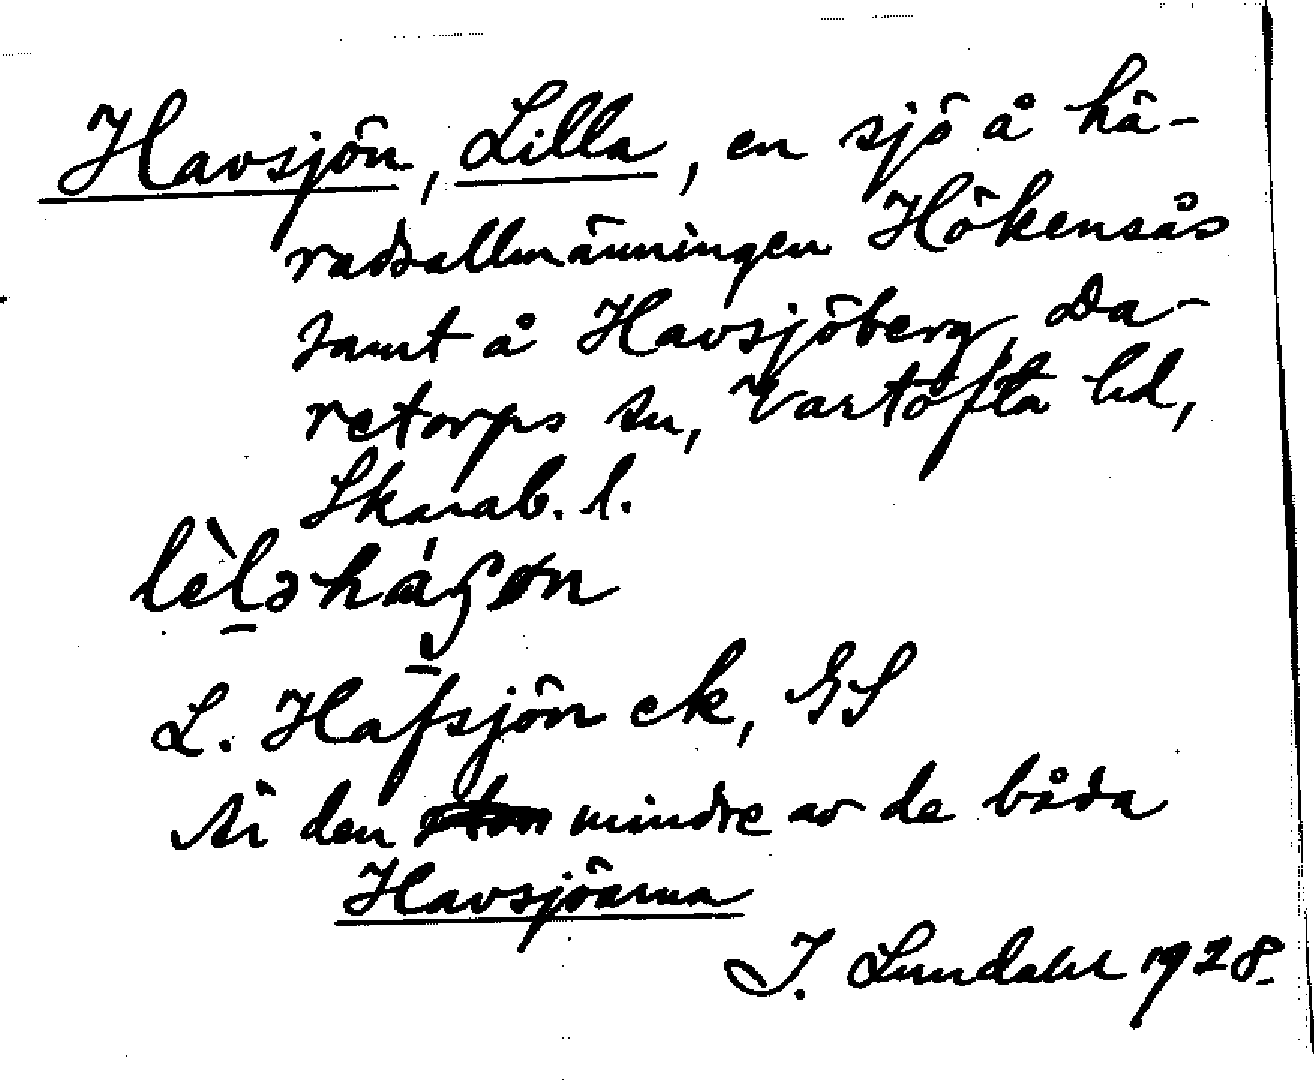 Havsjön, Lilla, en sjö å hä-
radsallmänningen Hökensås
samt å Havsjöberg, Da-
retorps sn, Vartofta hd,
Skarab. l.
L. Hafsjön ek, GS
Är den mindre av de båda
Havsjöarna
I. Lundahl 1928.